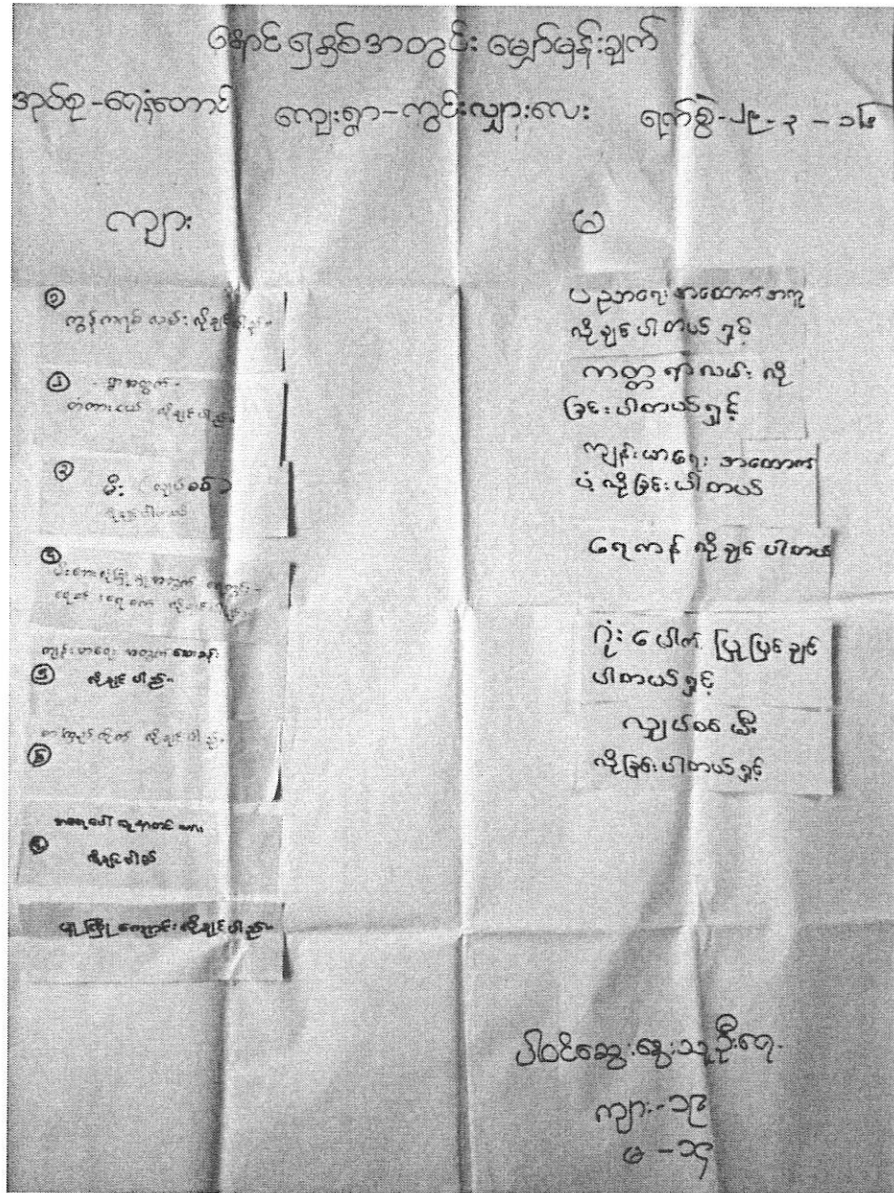 နောင် ၅ နှစ်အတွင်း မျှော်မှန်းချက်
အုပ်စု - ရေနံတောင် ကျေးရွာ - ကွင်းလျှားလေး ရက်စွဲ - ၂၉ - ၃ - ၁၆
ကျား
မ
၁
ကွန်ကရစ် လမ်း လိုချင်ပါသည်။
၂ - ရွာအတွက် -
တံတားငယ် လိုချင်ပါသည်။
၃
မီး (လျှပ်စစ်)
လိုချင်ပါတယ်
၄
ကျန်းမာရေး အတွက် ဆေးခန်း
၅ လိုချင်ပါသည်။
စာကြည့်တိုက် လိုချင်ပါသည်။
၆
၇
လိုချင်ပါတယ်
မူကြိုကျောင်း လိုချင်ပါသည်။
ပညာရေး အထောက်အကူ
လိုချင်ပါတယ် ရှင့်
ကတ္တရာလမ်း လို
ခြင်းပါတယ်ရှင့်
ကျန်းမာရေး အထောက်
ပံ့ လိုခြင်းပါတယ်
ရေကန် လိုချင်ပါတယ်
ဂုံးပေါက် ပြုပြင်ချင်
ပါတယ်ရှင့်
လျှပ်စစ်မီး
လိုခြင်းပါတယ်ရှင့်
ပါဝင်ဆွေးနွေးသူဦးရေ
ကျား - ၁၉
မ - ၁၄